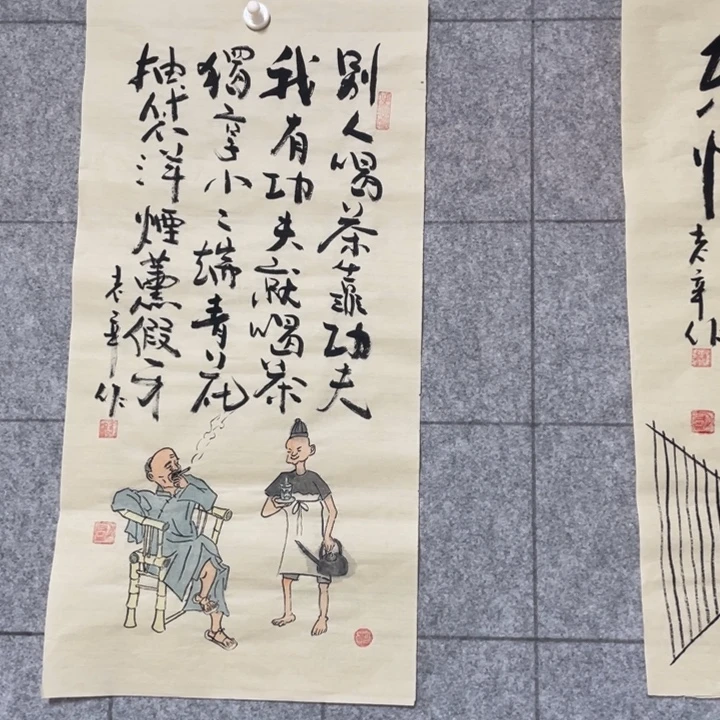 别人喝茶靠功夫
我有功夫就喝茶
獨享小二端青花
抽袋洋煙薰假牙
老辛作
老辛作